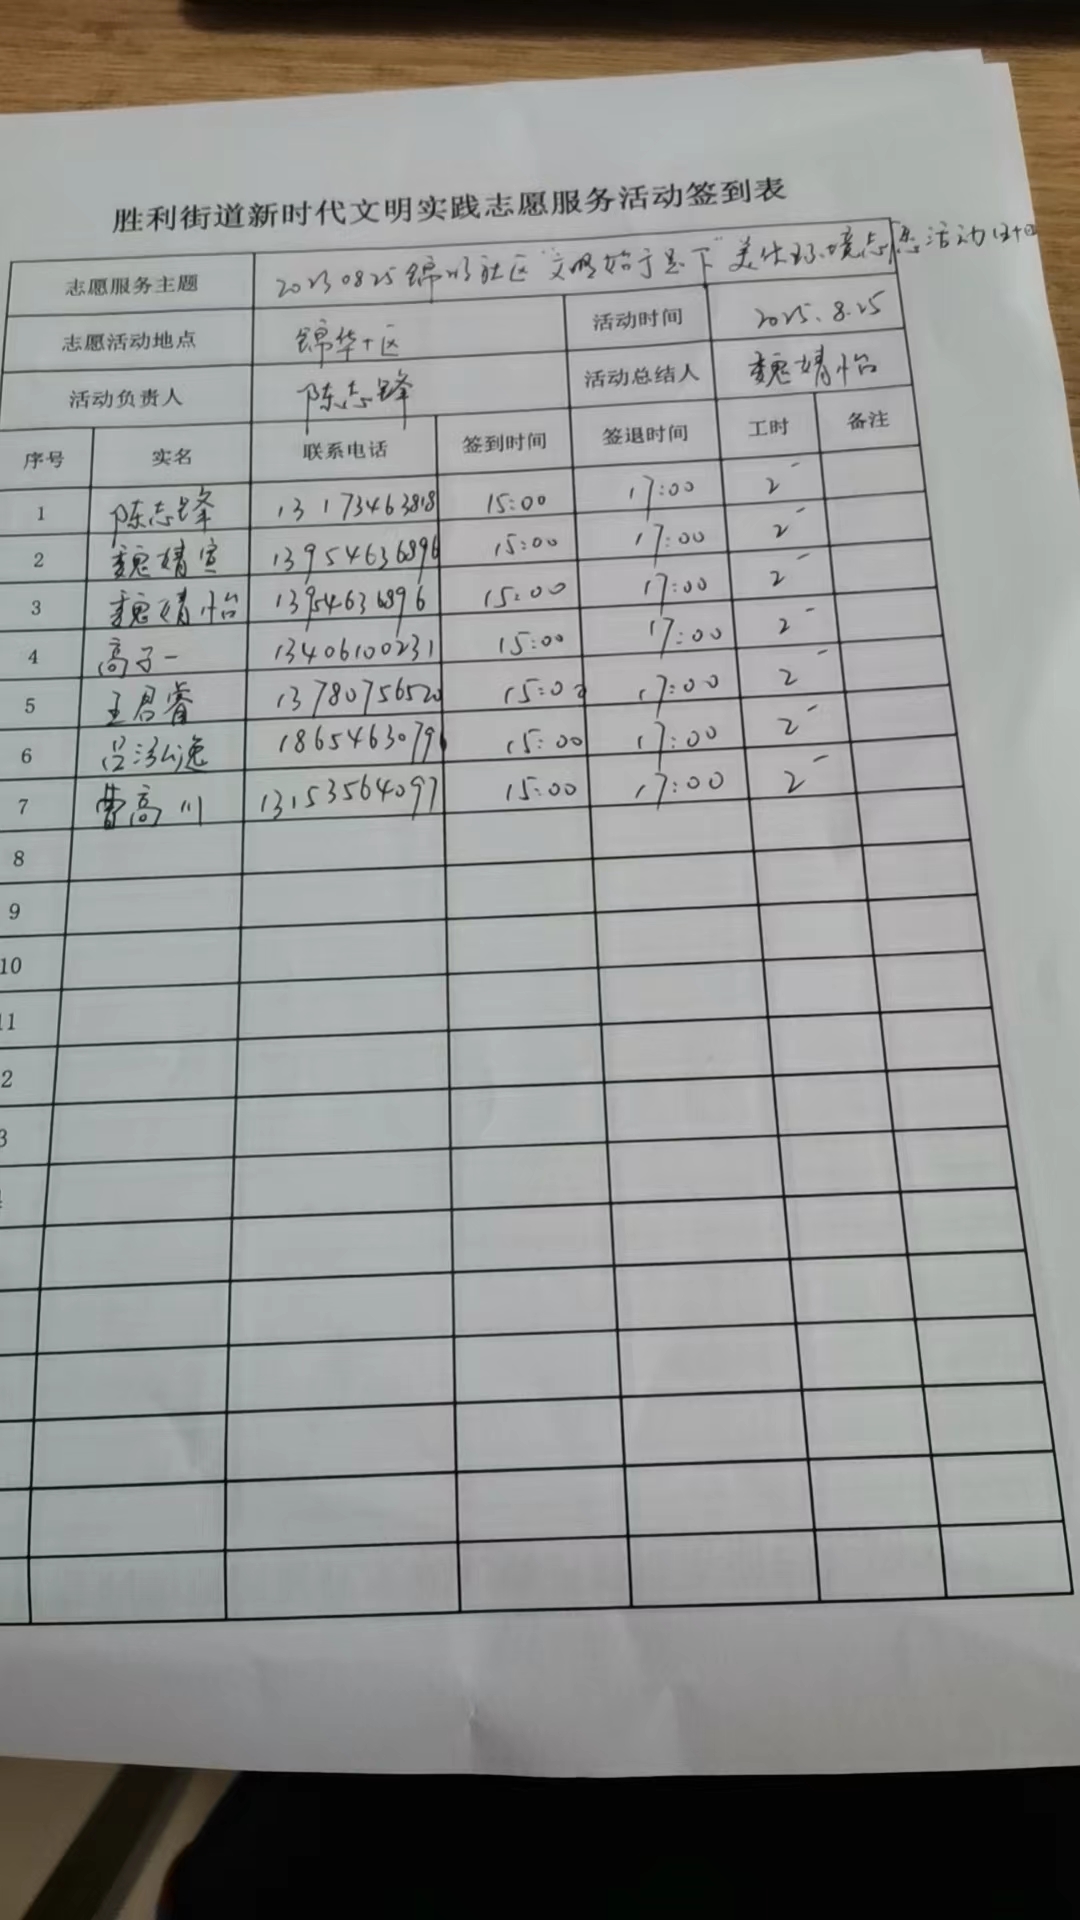 胜利街道新时代文明实践志愿服务活动签到表
志愿服务主题 20250825锦华社区"文明始于足下"美化环境志愿活动
志愿活动地点 锦华十区 活动时间 2025.8.25
活动负责人 陈志锋 活动总结人 魏婧怡
序号 实名 联系电话 签到时间 签退时间 工时 备注
1 陈志锋 13173463818 15:00 17:00 2
2 魏婧宣 13954636896 15:00 17:00 2
3 魏婧怡 13954636896 15:00 17:00 2
4 高子一 13406100231 15:00 17:00 2
5 王君睿 13780756520 15:00 17:00 2
6 吕泓逸 18654630796 15:00 17:00 2
7 曹高川 13153564097 15:00 17:00 2
8
9
10
11
2
3